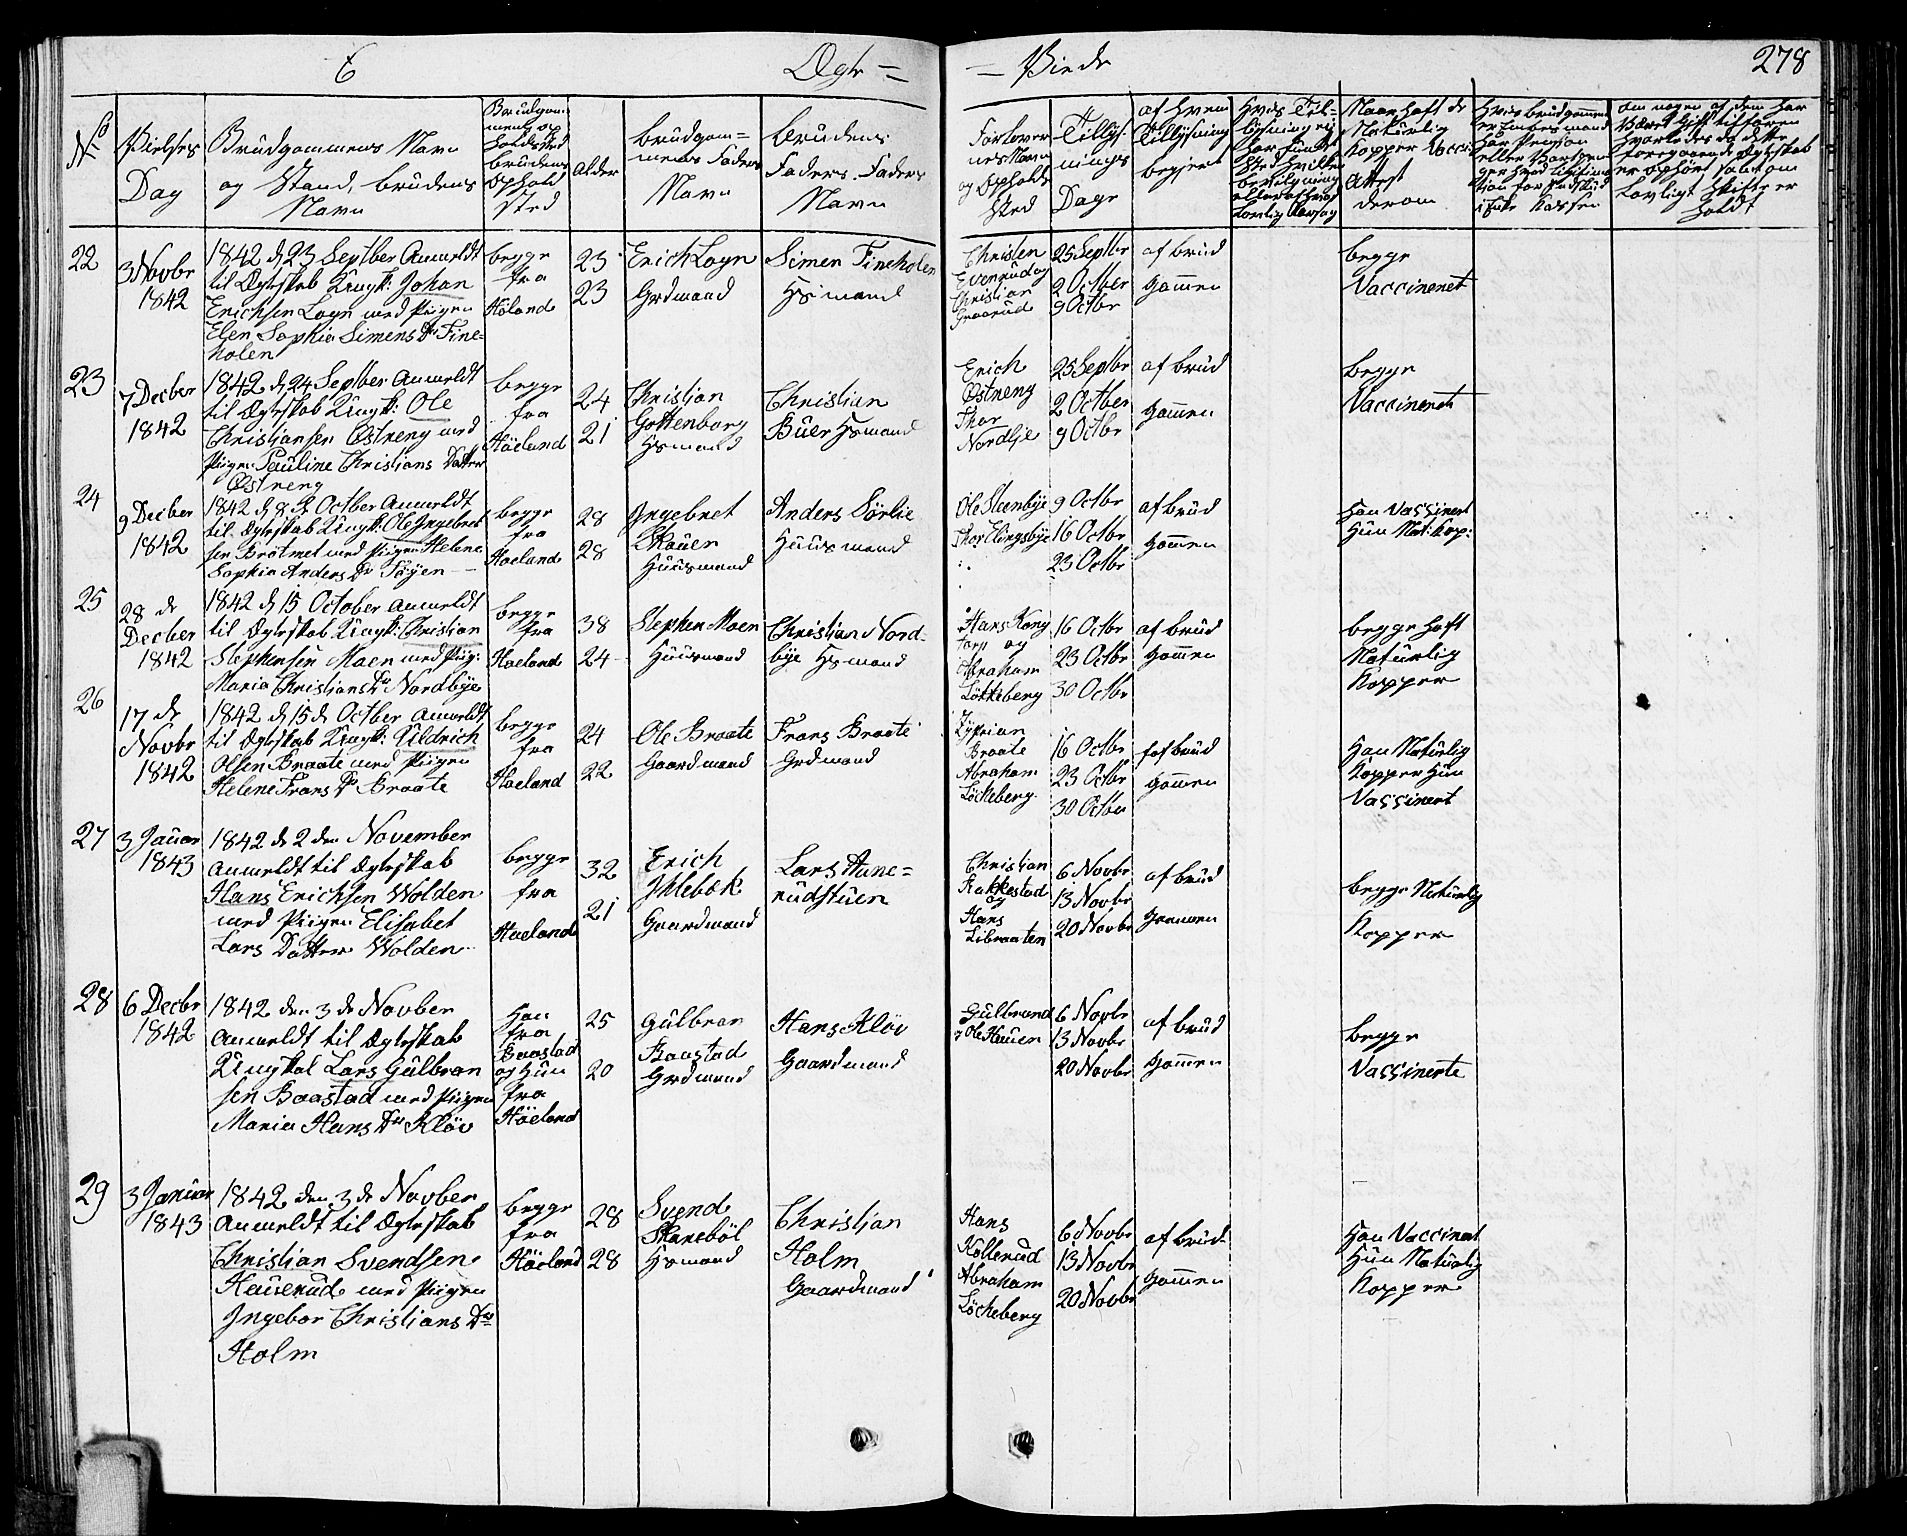 6 Ægte = = Viede 278
No
Vielses
Dag
Brudgommens Navn
og Stand, brudens
Navn
Brudgom
mens op
holdssted
brudens
Ophold
sted
Alder
brudgom=
mens Faders
Navn
brudens
Faders
Navn
Forlover
nes Navn
og Opholds
sted
Tillys-
nings
Dage
af hvem
Tillysning
begjert
Naar haft de
Naturlig
Kopper
Attest
derom
22
3 Novbr
1842
1842 d 23 Septber Anmeldt
til Ægteskab Ungk: Johan
Erichsen Logn med Pigen
Elen Sophia Simens Dr Fine-
holen
begge
fra
Höland
23
23
Erich Logn
Grdmand
Simen Fineholen
Hsmand
Christen
Evenrud og
Christian
Graarud
25 Septbr
2 October
9 Octbr
af brud
gommen
begge
Vaccineret
23
7 Decber
1842
1842 d 24 Septber Anmeldt
til Ægteskab Ungk: Ole
Christiansen Østreng med
Pigen Pauline Christians Datter
Østreng
begge
fra
Höeland
24
21
Christian
Gottenborg
Hsmand
Christian
Buer Hsmand
Erich
Østreng
Thor
Nordlje
25 Septbr
2 Octber
9 Octbr
af brud
gommen
begge
Vaccineret
24
9 Decber
1842
1842 d 8 de Octber Anmeldt
til Ægteskab Ungk: Ole Ingebret
sen Bråtmet med Pigen Helene
Sophia Anders Dr Töyen
begge
fra
Hoeland
28
28
Ingebret
Huusmand
Anders Sörlie
Huusmand
Ole Steenbye
Thor Elingsbye
9 Octbr
16 Octbr
23 Octbr
af brud
gommen
Han Vassinert
Hun Nat: Kop:
25
28 de
Decber
1842
1842 d 15 October Anmeldt
til Ægteskab Ungk: Christian
Stephensen Moen med Pig:
Maria Christians Dr Nordbye
begge
fra
Hoeland
38
24
Stephen Moen
Huusmand
Christian Nord-
bye Hsmand
Hans Kong
torp og
Abraham
Løkkeberg
16 Octbr
23 Octbr
30 Octbr
af brud
gommen
begge haft
Naturlig
Kopper
26
17 de
Novbr
1842
1842 d 15 de Octber Anmeldt
til Ægteskab Ungk: Uldrich
Olsen Braate med Pigen
Helene Frans Dr Braate
begge
fra
Hoeland
24
22
Ole Braate
Gaardmand
Frans Braate
Grdmand
Zyprian
Braate
Abraham
Löckeberg
16 Octbr
23 Octbr
30 Octbr
af brud
gommen
Han Naturlig
Kopper Hun
Vassinert
27
3 Januar
1843
1842 d 2 den November
Anmeldt til Ægteskab
Hans Erichsen Wolden
med Pigen Elisabet
Lars Datter Wolden
begge
fra
Hoeland
32
21
Erich
Ihlebæk
Gaardmand
Lars Aane=
rudstuen
Christian
Rakkestad
og
Hans
Libraaten
6 Novbr
13 Novbr
20 Novbr
af brud
gommen
begge Naturlig
Kopper
28
6 Decbr
1842
1842 den 3 de Novber
Anmeldt til Ægteskab
Ungkal Lars Gulbran
sen Baastad med Pigen
Maria Hans Dr Kløv
Han
fra
Baastad
og Hun
fra
Höeland
25
20
Gulbran
Baastad
Grdmand
Hans Kløv
Gaardmand
Gulbrand
Ole Hauen
6 Novbr
13 Novbr
20 Novbr
af brud
gommen
begge
Vassinerte
29
3 Januar
1843
1842 den 3 de Novber
Anmeldt til Ægteskab
Christian Svendsen
Hauerud med Pigen
Ingebor Christians Dr
Holm
begge
fra
Höeland
28
28
Svend
Skanebøl
Hsmand
Christian
Holm
Gaardmand
Hans
Kollerud
Abraham
Löckeberg
6 Novbr
13 Novbr
20 Novbr
af brud-
gommen
Han Vaccinert
Hun Naturlig
Kopper